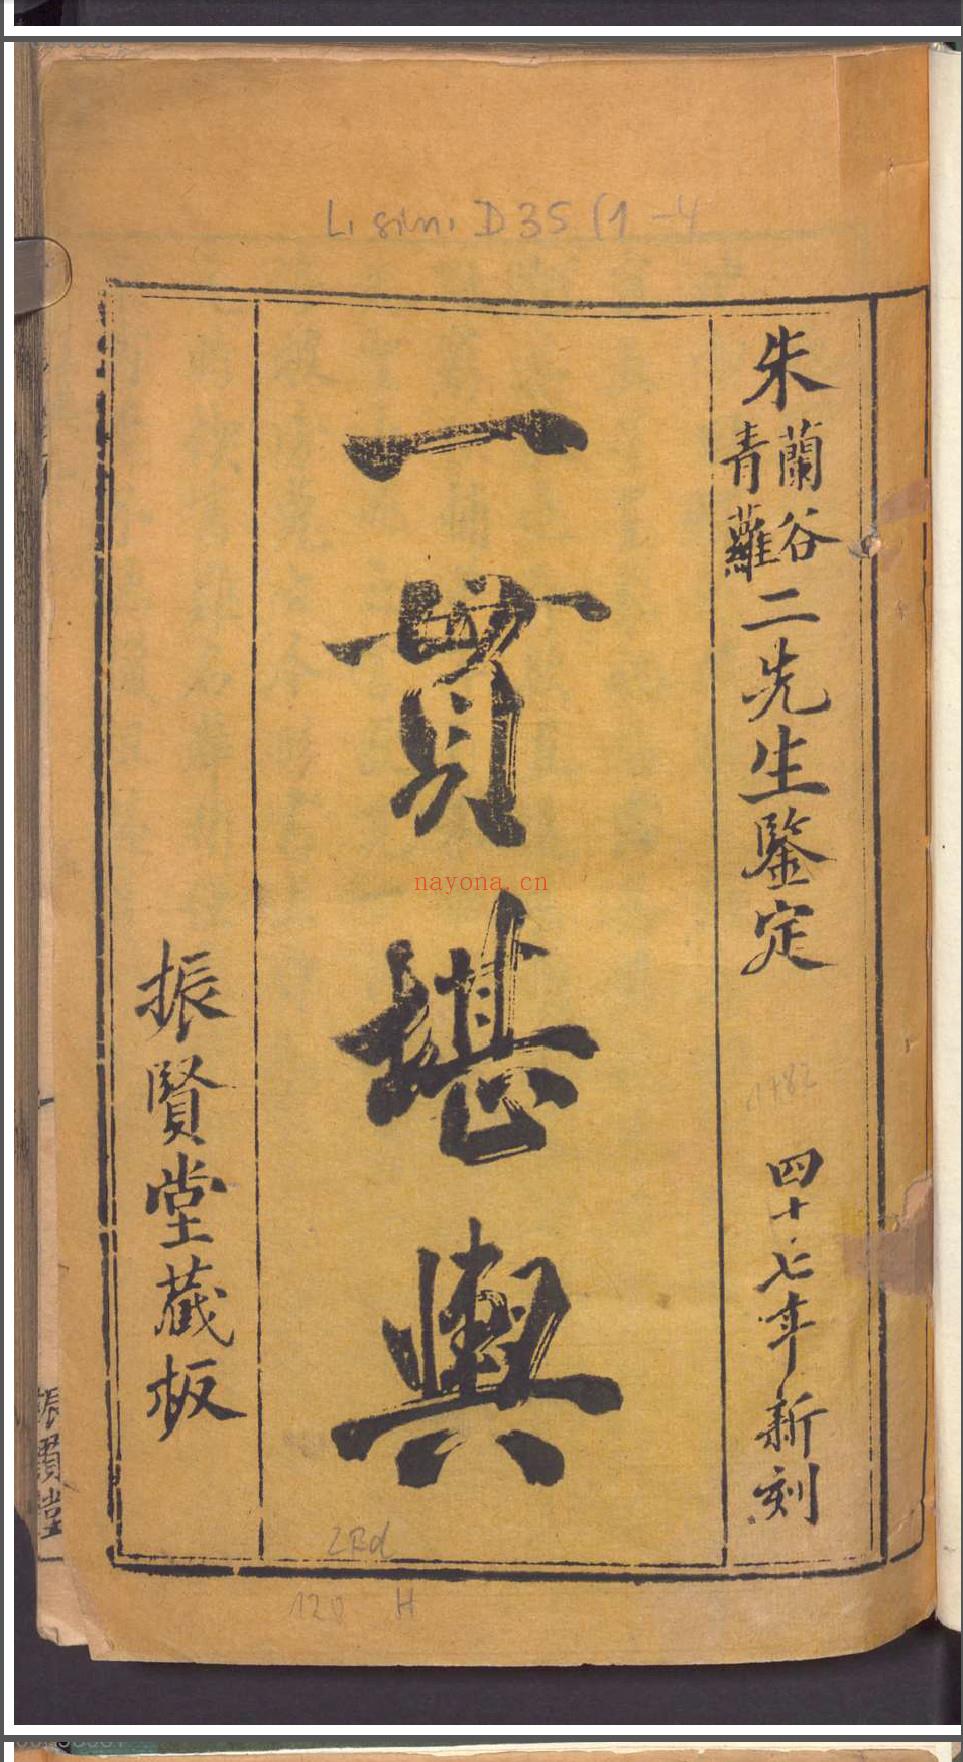 L. sin. D 35 (1-4
朱蘭谷青蘿二先生鑒定
1782
四十七年新刻
一貫堪輿
nayona.cn
振賢堂藏板
120 H